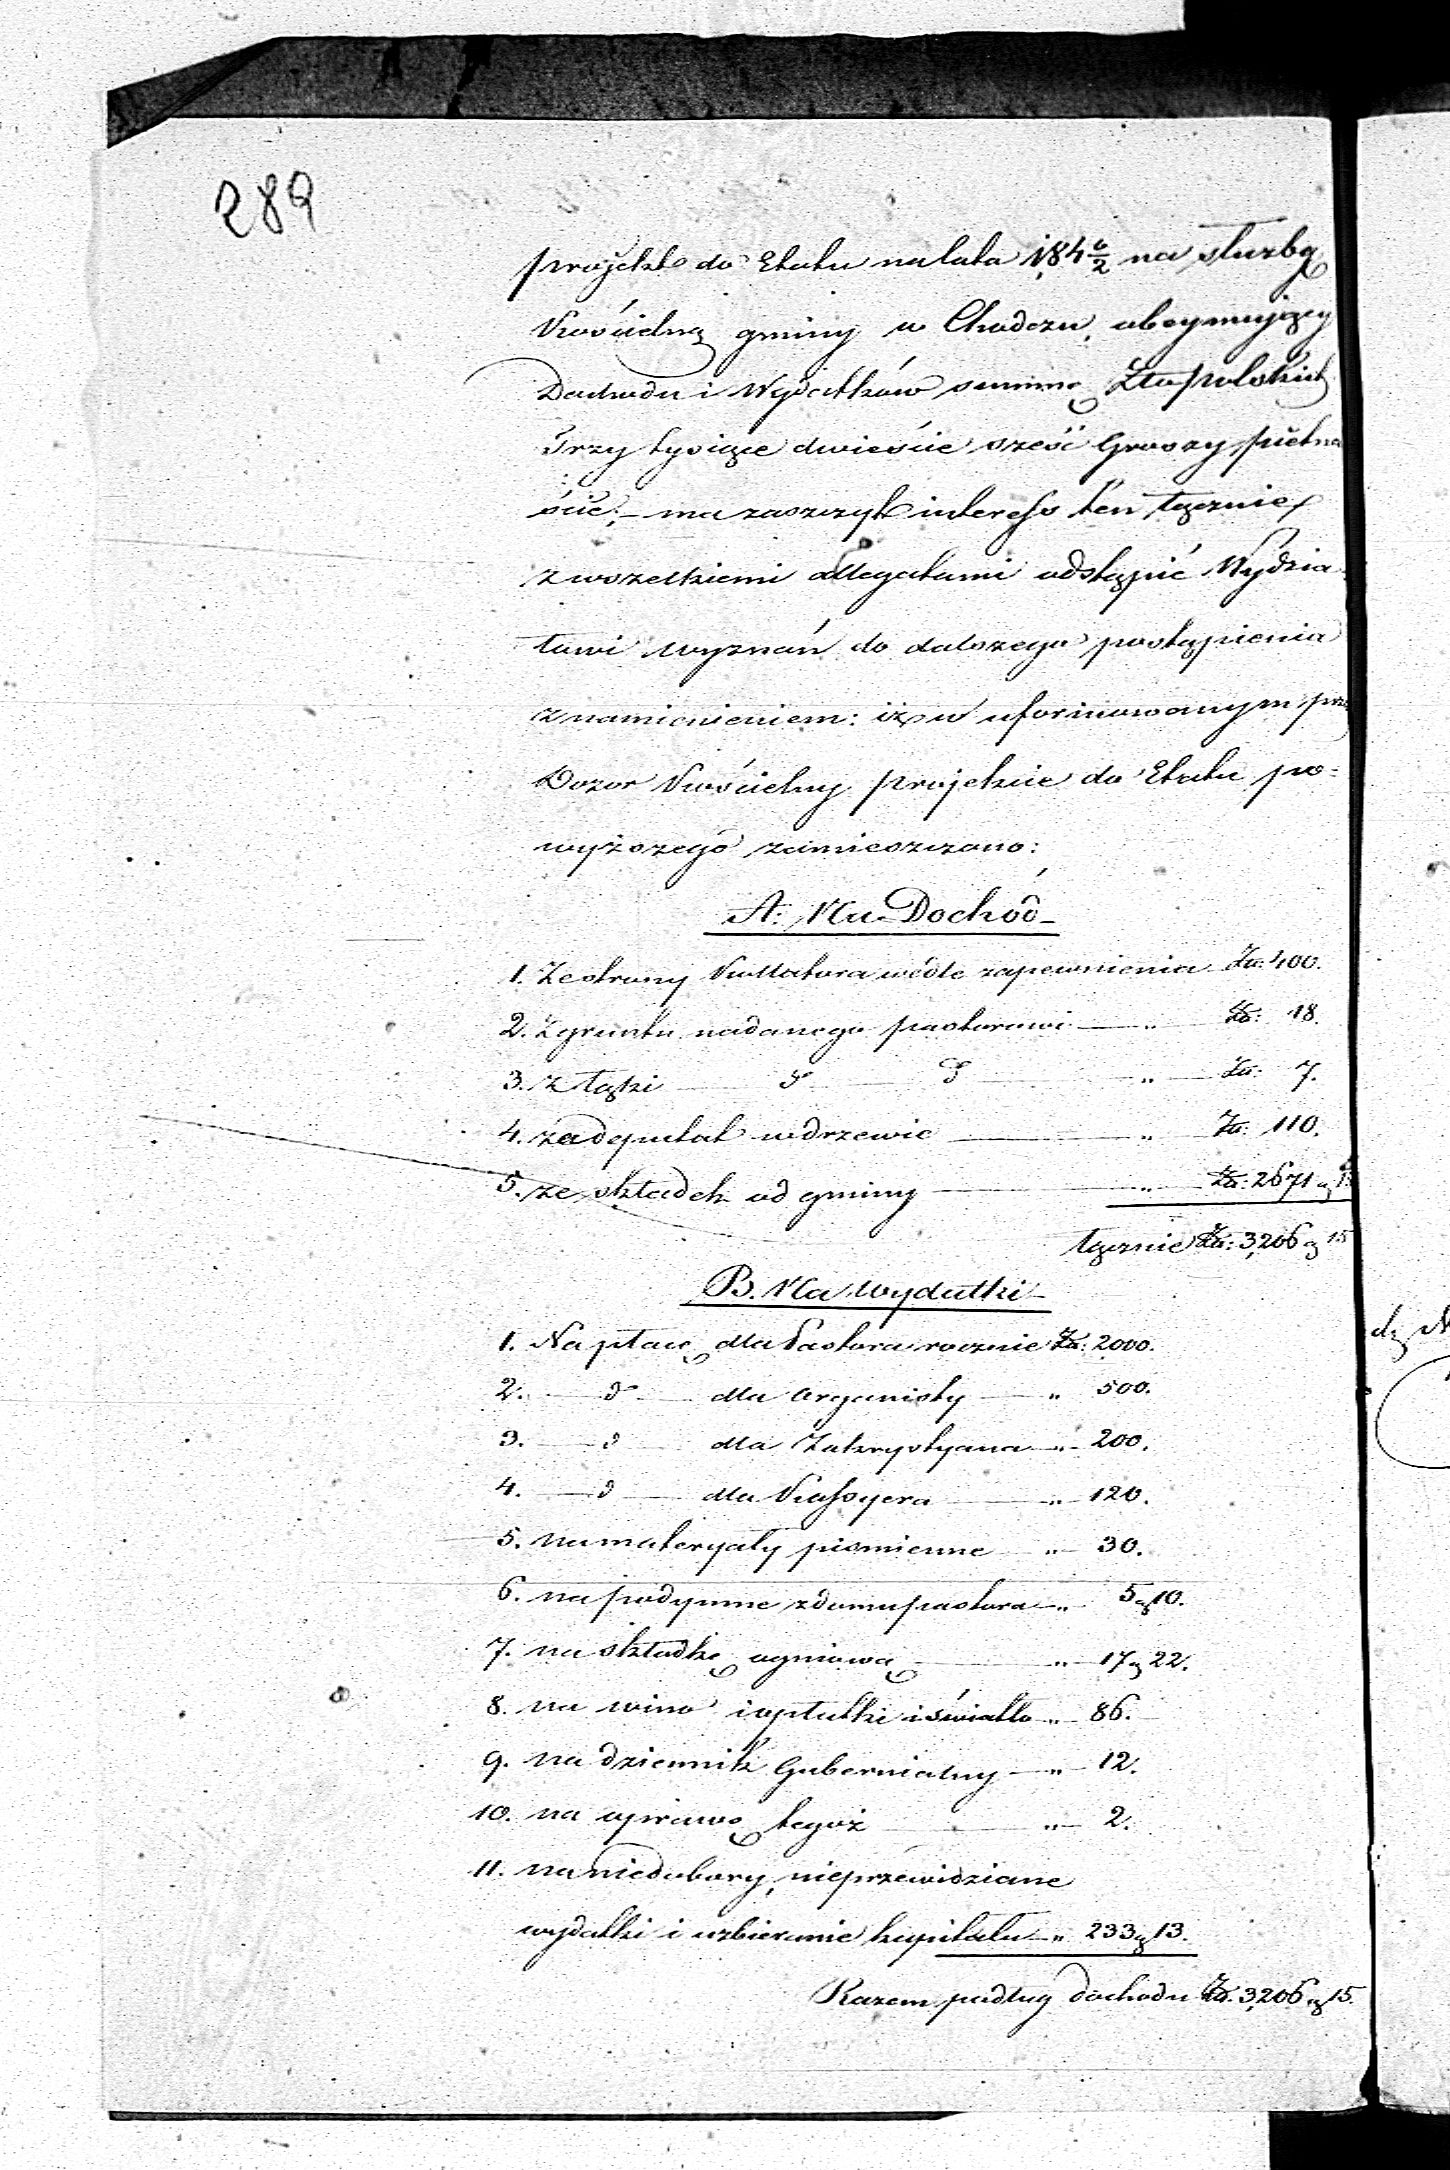 289
projekt do Etatu na lata 184 0/2 na służbę
Kościelną gminy w Chodczu, obeymujący
Dochodu i Wydatków summę Złtopolskich
Trzy tysiące dwieście sześć Groszy pietna
ście; – ma zaszczyt interess ten łącznie
z wszelkiemi allegatami odstąpić Wydzia-
łowi wyznań do dalszego postąpienia
z namienieniem: iż w uformowanym prze
Dozor Kościelny projekcie do Etatu po=
wyższego zamieszczono:
A: Na Dochód
1. Ze strony Kollatora wedle zapewnienia Zł. 400.
2. Z gruntu nadanego pastorowi — „ Zł: 18.
3. z łąki d° d° „ Zł: 7.
4. za deputat w drzewie „ Zł: 110.
5. ze składek od gminy „ Zł: 2671 g 15
łącznie Zł: 3,206 g 15
B. Na wydatki
1. Na płacę dla Pastora rocznie Zł: 2000.
2. — d° — dla organisty — „ 500.
3. — d — dla Zakrystyana „ 200.
4. — d — dla Kassyera — „ 120.
5. na materyały piśmienne „ 30.
6. na podymne z domu pastora „ 5 g 10.
7. na składkę ogniową „ 17 g 22.
8. na wino i opłatki i światło „ 86.
9. na dziennik Gubernialny — „ 12.
10. na oprawę tegoż „ 2.
11. na niedobory, nieprzewidziane
wydatki i uzbieranie kapitału „ 233 g 13.
Razem podług dochodu Zł. 3,206 g 15.